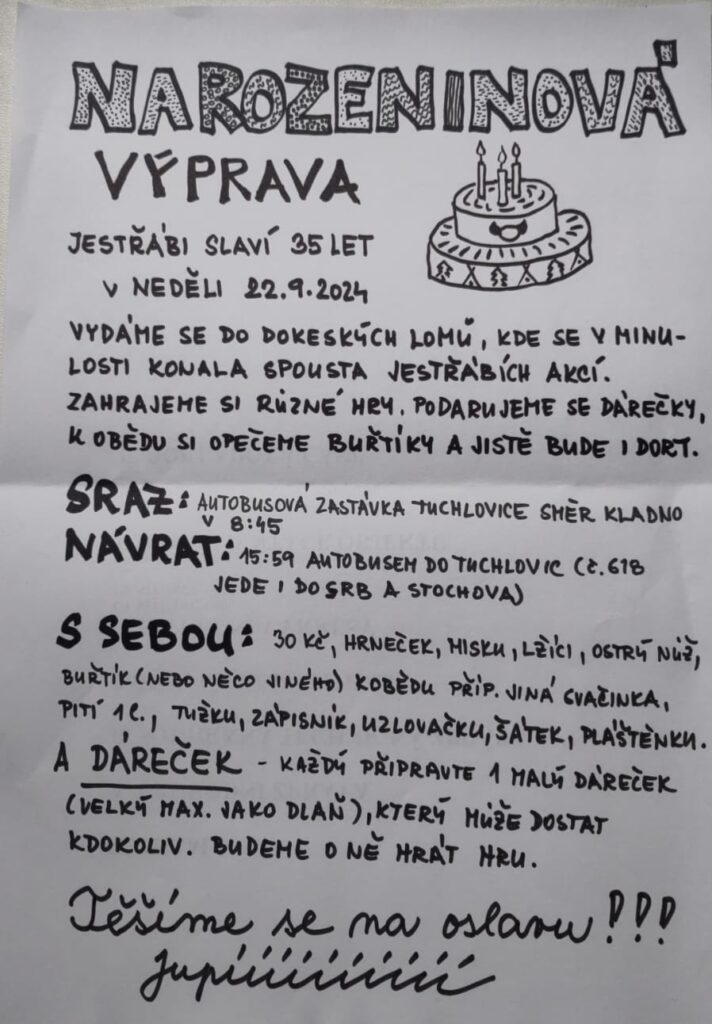 NAROZENINOVÁ
VÝPRAVA
JESTŘÁBI SLAVÍ 35 LET
V NEDĚLI 22.9.2024
VYDÁME SE DO DOKESKÝCH LOMŮ, KDE SE V MINU-
LOSTI KONALA SPOUSTA JESTŘÁBÍCH AKCÍ.
ZAHRAJEME SI RŮZNÉ HRY. PODARUJEME SE DÁREČKY,
K OBĚDU SI OPEČEME BUŘTÍKY A JISTĚ BUDE I DORT.
SRAZ: AUTOBUSOVÁ ZASTÁVKA TUCHLOVICE SMĚR KLADNO
V 8:45
NÁVRAT: 15:59 AUTOBUSEM DO TUCHLOVIC (Č. 618
JEDE I DO SRB A STOCHOVA)
S SEBOU: 30 KČ, HRNEČEK, MISKU, LŽÍCI, OSTRÝ NŮŽ,
BUŘTÍK (NEBO NĚCO JINÉHO) K OBĚDU PŘÍP. JINÁ SVAČINKA,
PITÍ 1 l., TUŽKU, ZÁPISNÍK, UZLOVAČKU, ŠÁTEK, PLÁŠTĚNKU.
A DÁREČEK - KAŽDÝ PŘIPRAVTE 1 MALÝ DÁREČEK
(VELKÝ MAX. JAKO DLAŇ), KTERÝ MŮŽE DOSTAT
KDOKOLIV. BUDEME O NĚ HRÁT HRU.
Těšíme se na oslavu!!!
Jupíííííííííí